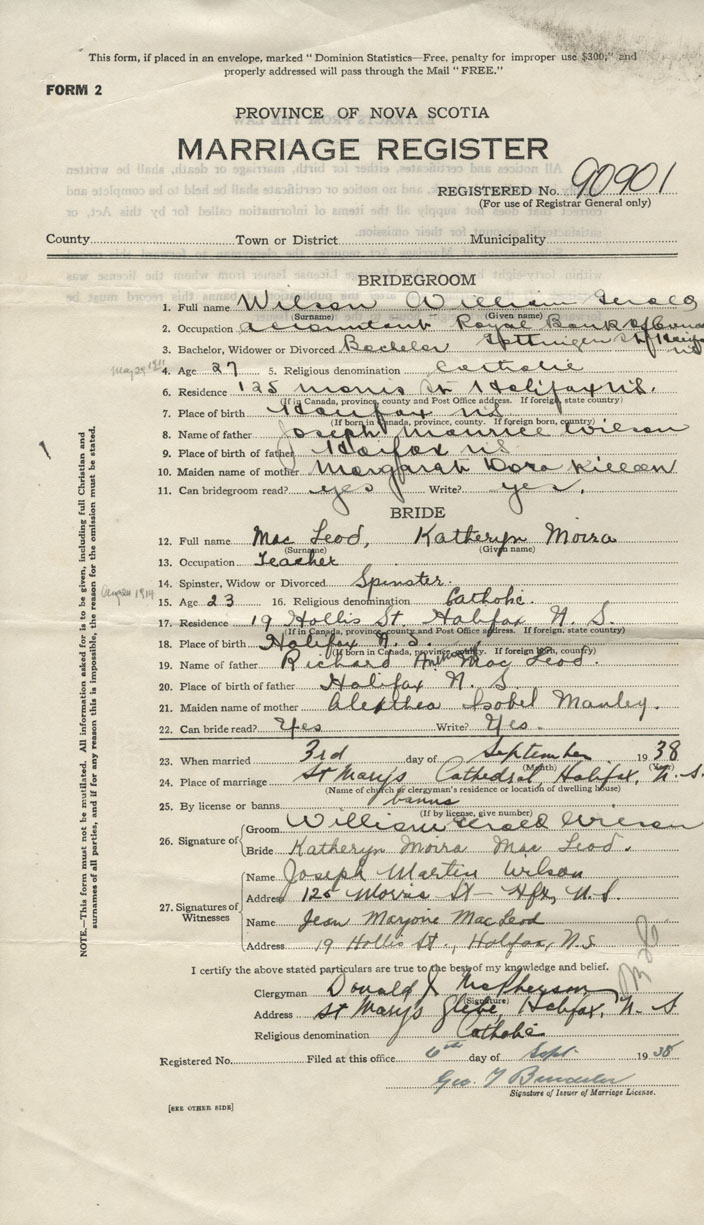 This form, if placed in an envelope, marked "Dominion Statistics—Free, penalty for improper use $300;" and
properly addressed will pass through the Mail "FREE."
FORM 2
PROVINCE OF NOVA SCOTIA
MARRIAGE REGISTER
REGISTERED No. 90901
(For use of Registrar General only)
County Town or District Municipality
BRIDEGROOM
1. Full name Wilson William Gerald
(Surname) (Given name)
2. Occupation accountant Royal Bank of Canada
3. Bachelor, Widower or Divorced Bachelor
4. Age 27 5. Religious denomination Catholic
6. Residence 125 Morris St Halifax N.S.
(If in Canada, province, county and Post Office address. If foreign, state country)
7. Place of birth Halifax NS
(If born in Canada, province, county. If foreign born, country)
8. Name of father Joseph Maurice Wilson
9. Place of birth of father Halifax NS
10. Maiden name of mother Margarah Dora Killeen
11. Can bridegroom read? yes Write? yes.
BRIDE
12. Full name Mac Leod, Katheryn Moira
(Surname) (Given name)
13. Occupation Teacher
14. Spinster, Widow or Divorced Spinster.
15. Age 23 16. Religious denomination Catholic.
17. Residence 19 Hollis St. Halifax N. S.
(If in Canada, province, county and Post Office address. If foreign, state country)
18. Place of birth Halifax N. S.
(If born in Canada, province, county. If foreign born, country)
19. Name of father Richard Mac Leod.
20. Place of birth of father Halifax N. S.
21. Maiden name of mother Alexthea Isobel Manley.
22. Can bride read? Yes Write? Yes.
23. When married 3rd day of September 1938
(Month) (Year)
24. Place of marriage St Mary's Cathedral Halifax, N. S.
(Name of church or clergyman's residence or location of dwelling house)
25. By license or banns banns
(If by license, give number)
26. Signature of Groom William Gerald Wilson
Bride Katheryn Moira Mac Leod.
27. Signatures of Witnesses
Name Joseph Martin Wilson
Address 125 Morris St - Hfx, N.S.
Name Jean Marjorie MacLeod
Address 19 Hollis St., Halifax, N.S.
I certify the above stated particulars are true to the best of my knowledge and belief.
Clergyman Donald J McPherson
(Signature)
Address St Mary's Glebe, Halifax, N. S
Religious denomination Catholic
Registered No. Filed at this office 6th day of Sept. 1938
Geo. T
Signature of Issuer of Marriage License.
[SEE OTHER SIDE]
NOTE.—This form must not be mutilated. All information asked for is to be given, including full Christian and
surnames of all parties, and if for any reason this is impossible, the reason for the omission must be stated.